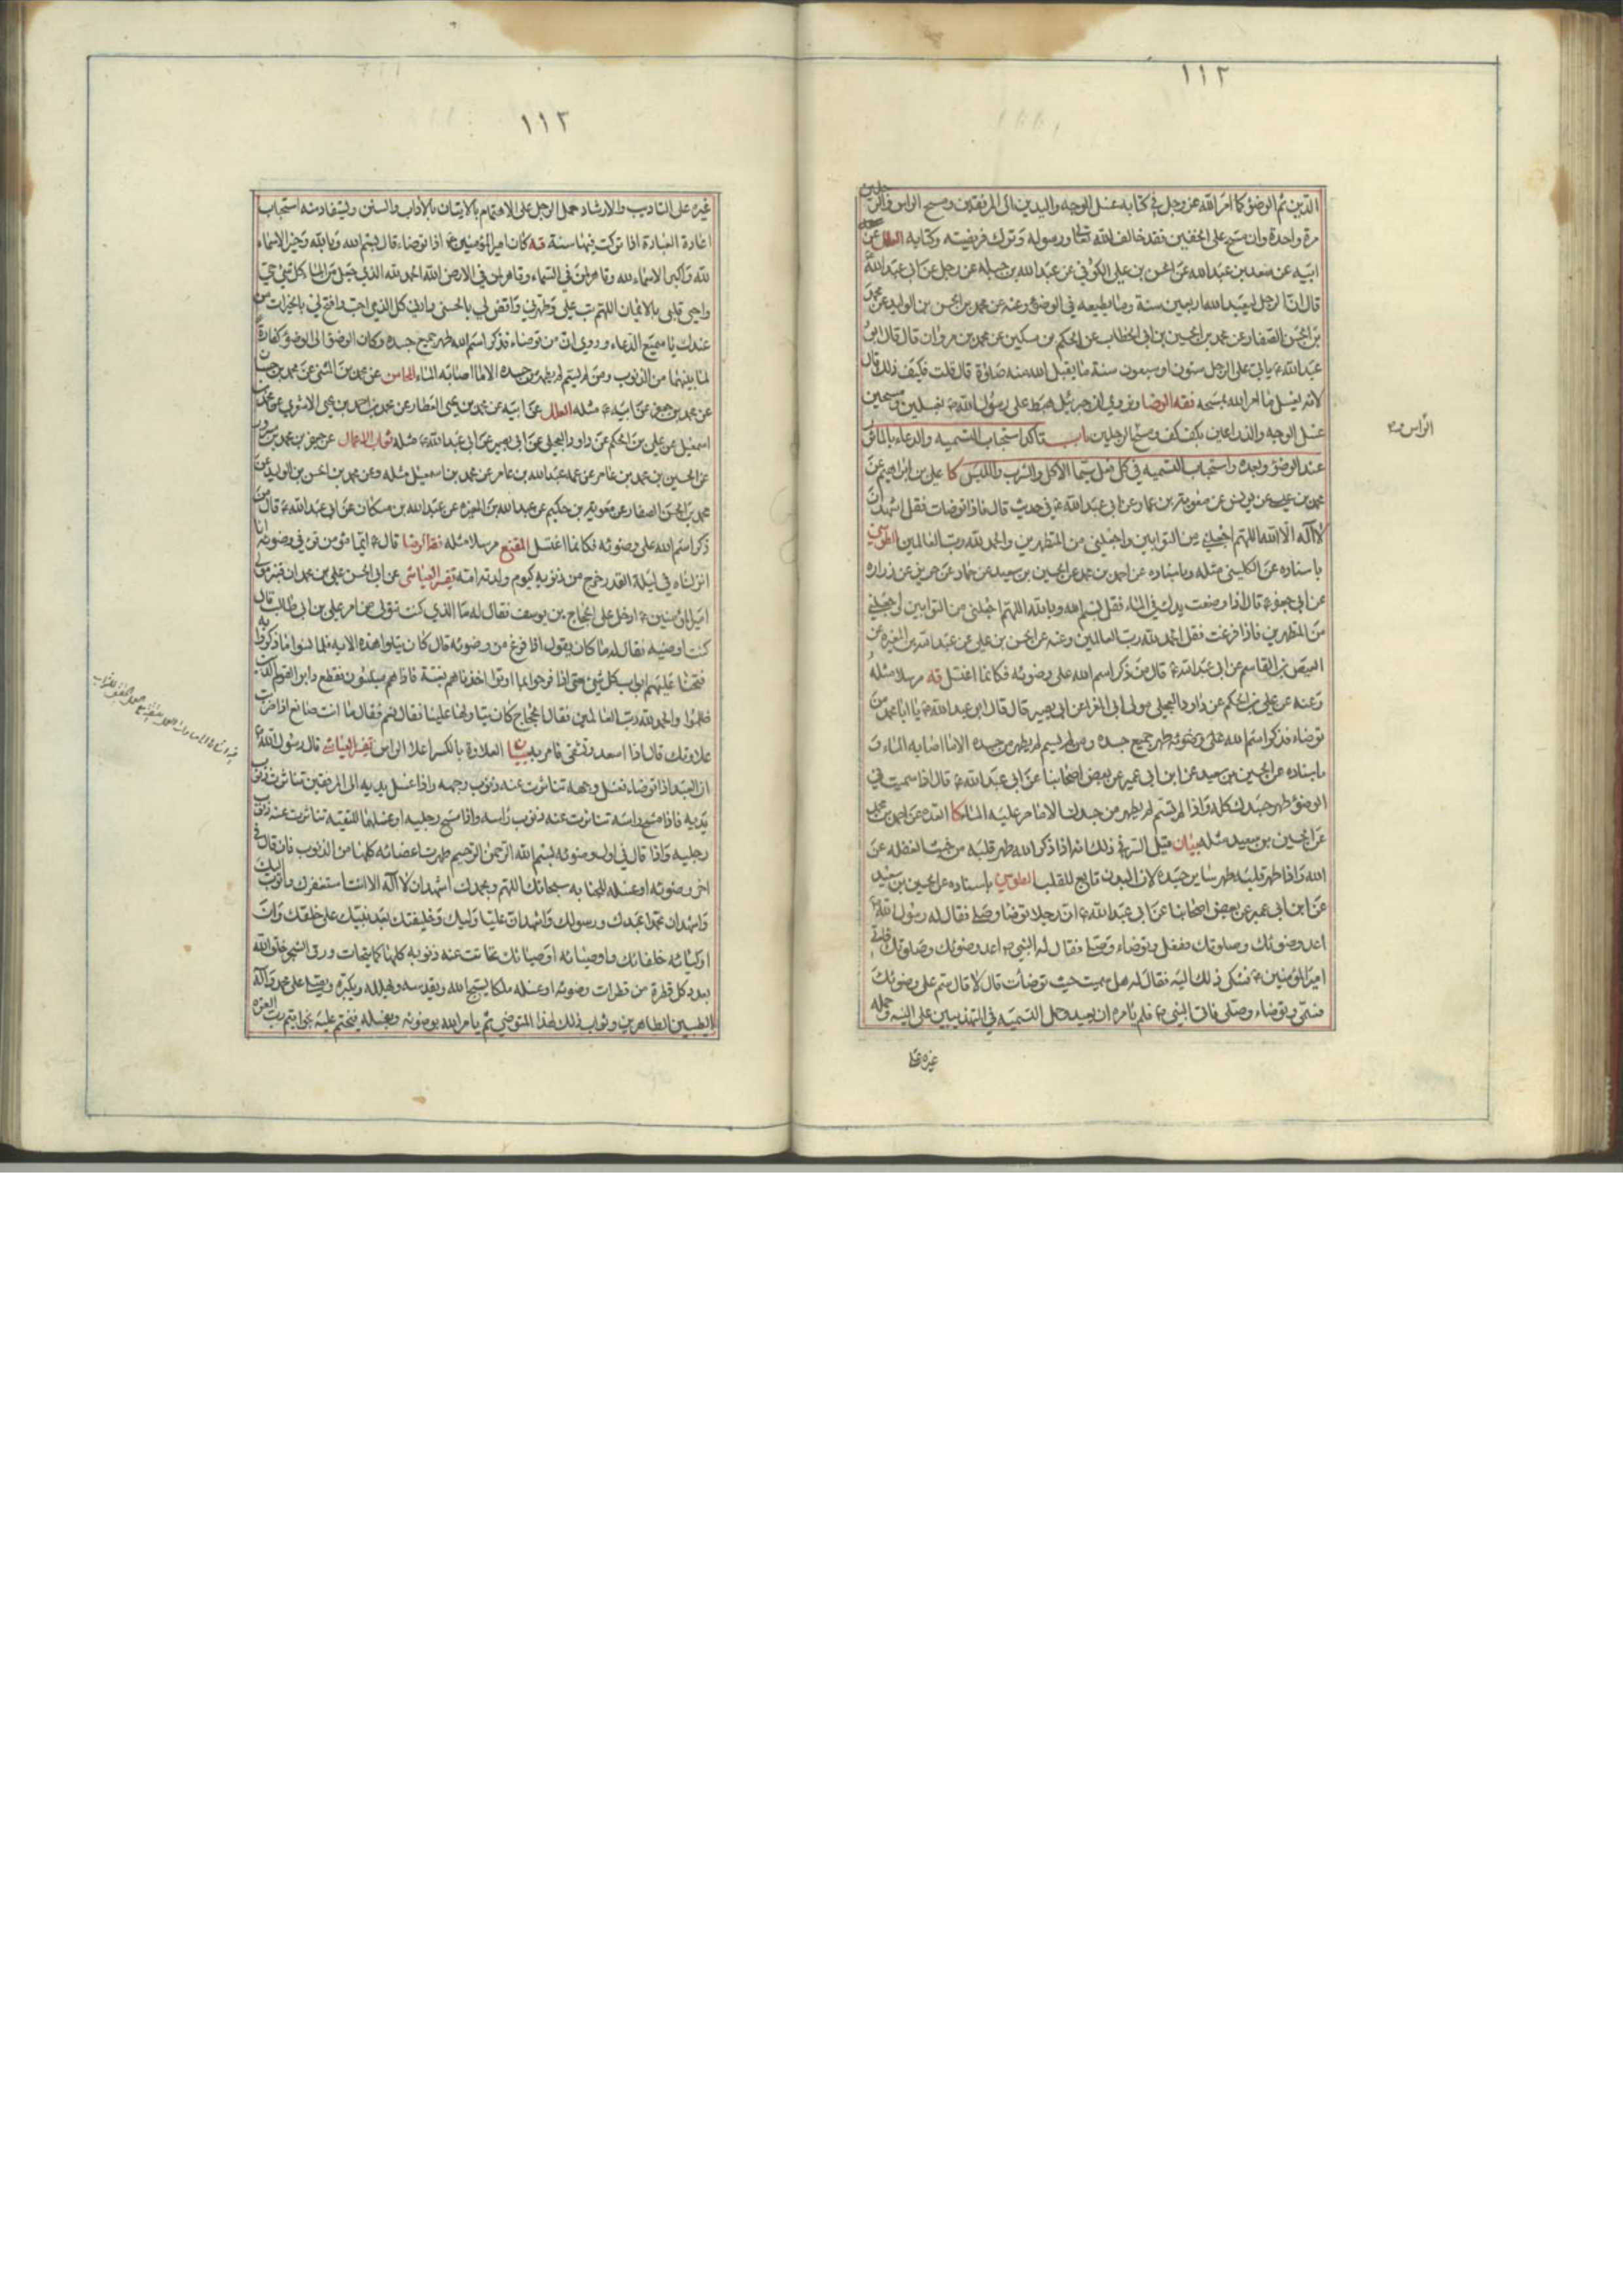 ١١٢
الدين ثم الوضوء كما امر الله عز وجل في كتابه غسل الوجه واليدين الى المرفقين ومسح الراس والرجلين
مرة واحدة وان مسح على الخفين فقد خالف الله تعالى ورسوله وترك فريضته وكتابه العلل عن
ابيه عن سعد بن عبد الله عن الحسن بن علي الكوفي عن عبد الله بن جبلة عن رجل عن ابي عبد الله ع
قال ان الرجل ليعبد الله اربعين سنة وما يطيعه في الوضوء وعنه عن محمد بن الحسن بن الوليد عن محمد
بن الحسن الصفار عن محمد بن الحسين بن ابي الخطاب عن الحكم بن مسكين عن محمد بن مروان قال قال ابو
عبد الله ع ياتي على الرجل ستون او سبعون سنة ما يقبل الله منه صلوة قال قلت فكيف ذلك قال
لانه يغسل ما امر الله بمسحه فقه الرضا ونروي ان جبرئيل هبط على رسول الله ص بغسلين ومسحين
غسل الوجه والذراعين بكف كف ومسح الرجلين باب تاكد استحباب التسمية والدعاء بالماثور
الراس و
عند الوضوء واجده واستحباب التسمية في كل فعل سيما الاكل والشرب واللبس كا علي بن ابراهيم عن
محمد بن عيسى عن يونس عن معوية بن عمار عن ابي عبد الله ع في حديث قال فاذا توضات فقل اشهد ان
لا اله الا الله اللهم اجعلني من التوابين واجعلني من المتطهرين والحمد لله رب العالمين الطوسي
باسناده عن الكليني مثله وباسناده عن احمد بن محمد عن الحسين بن سعيد عن حماد عن حريز عن زراره
عن ابي جعفر ع قال اذا وضعت يدك في الماء فقل بسم الله وبالله اللهم اجعلني من التوابين واجعلني
من المتطهرين فاذا فرغت فقل الحمد لله رب العالمين وعنه عن الحسن بن علي عن عبد الله بن المغيره عن
العيص بن القاسم عن ابي عبد الله ع قال من ذكر اسم الله على وضوئه فكانما اغتسل قه مرسلا مثله
وعنه عن علي بن الحكم عن داود العجلي مولى ابي المغرا عن ابي بصير قال قال ابو عبد الله ع يا ابا محمد من
توضاء فذكر اسم الله على وضوئه طهر جميع جسده ومن لم يسم لم يطهر من جسده الا ما اصابه الماء و
باسناده عن الحسين بن سعيد عن ابن ابي عمير عن بعض اصحابنا عن ابي عبد الله ع قال اذا سميت في
الوضوء طهر جسدك كله واذا لم تسم لم يطهر من جسدك الا ما مر عليه الماء كا العده عن احمد بن محمد
عن الحسين بن سعيد مثله بيان قيل السر في ذلك انه اذا ذكر الله طهر قلبه من خبث الغفله عن
الله واذا طهر قلبه طهر سائر جسده لان البدن تابع للقلب الطوسي باسناده عن الحسين بن سعيد
عن ابن ابي عمير عن بعض اصحابنا عن ابي عبد الله ع ان رجلا توضا وصلى فقال له رسول الله ص
اعد وضوئك وصلوتك ففعل وتوضاء وصلى فقال له النبي ص اعد وضوئك وصلوتك فاتى
امير المؤمنين ع فشكى ذلك اليه فقال له هل سميت حيث توضأت قال لا قال سم على وضوئك
فسمى وتوضاء وصلى فاتى النبي ص فلم يامره ان يعيد حمل التسمية في التهذيبين على النيه وحمله
غيره على
١١٣
غيره على التاديب والارشاد حمل الرجل على الاهتمام بالاتيان بالاداب والسنن ويستفاد منه استحباب
اعادة العبادة اذا تركت فيها سنة قه كان امير المؤمنين ع اذا توضاء قال بسم الله وبالله وخير الاسماء
لله واكبر الاسماء لله وقاهر لمن في السماء وقاهر لمن في الارض الله الحمد لله الذي جعل من الماء كل شئ حي
واحيى قلبي بالايمان اللهم تب علي وطهرني واقض لي بالحسنى وارني كل الذي احب وافتح لي بالخيرات من
عندك يا سميع الدعاء وروي ان من توضاء فذكر اسم الله طهر جميع جسده وكان الوضوء الى الوضوء كفارة
لما بينهما من الذنوب ومن لم يسم لم يطهر من جسده الا ما اصابه الماء المحاسن عن محمد بن المثنى عن محمد بن حسان
عن محمد بن جعفر عن ابيه ع مثله العلل عن ابيه عن محمد بن يحيى العطار عن محمد بن احمد بن يحيى الاشعري عن محمد بن
اسمعيل عن علي بن الحكم عن داود العجلي عن ابي بصير عن ابي عبد الله ع مثله ثواب الاعمال عن جعفر بن محمد بن مسرور
عن الحسين بن محمد بن عامر عن عمه عبد الله بن عامر عن محمد بن اسمعيل مثله وعن محمد بن الحسن بن الوليد عن
محمد بن الحسن الصفار عن معوية بن حكيم عن عبد الله بن المغيره عن عبد الله بن مسكان عن ابي عبد الله ع قال من
ذكر اسم الله على وضوئه فكانما اغتسل المقنع مرسلا مثله فقه الرضا قال ع ايما مؤمن قرء في وضوئه انا
انزلناه في ليلة القدر خرج من ذنوبه كيوم ولدته امه تفسير العياشي عن ابي الحسن علي بن محمد ان قنبر مولى
امير المؤمنين ع ادخل على الحجاج بن يوسف فقال له ما الذي كنت تولى من امر علي بن ابي طالب قال
كنت اوضيه فقال له ما كان يقول اذا فرغ من وضوئه قال كان يتلو هذه الاية فلما نسوا ما ذكروا به
فتحنا عليهم ابواب كل شئ حتى اذا فرحوا بما اوتوا اخذناهم بغتة فاذا هم مبلسون فقطع دابر القوم الذين
ظلموا والحمد لله رب العالمين فقال الحجاج كان يتاولها علينا فقال نعم فقال ما انت صانع اذا ضربت
علاوتك قال اذا اسعد وتشقى فامر به بيان العلاوة بالكسر اعلا الراس تفسير العياشي قال رسول الله ص
ان العبد اذا توضاء فغسل وجهه تناثرت عنه ذنوب وجهه واذا غسل يديه الى المرفقين تناثرت عنه ذنوب
يديه فاذا مسح راسه تناثرت عنه ذنوب راسه واذا مسح رجليه او غسلهما للتقيه تناثرت عنه ذنوب
رجليه واذا قال في اول وضوئه بسم الله الرحمن الرحيم طهرت اعضائه كلها من الذنوب فان قال في
اخر وضوئه او غسله للجنابه سبحانك اللهم وبحمدك اشهد ان لا اله الا انت استغفرك واتوب اليك
واشهد ان محمدا عبدك ورسولك واشهد ان عليا وليك وخليفتك بعد نبيك على خلقك وان
اوليائه خلفائك واوصيائه اوصيائك تحاتت عنه ذنوبه كلها كما يتحات ورق الشجر وخلق الله
بعدد كل قطرة من قطرات وضوئه او غسله ملكا يسبح الله ويقدسه ويهلله ويكبره ويصلي على محمد وآله
الطيبين الطاهرين وثواب ذلك لهذا المتوضي ثم يامر الله بوضوئه وغسله فيختم عليه بخاتم رب العزه